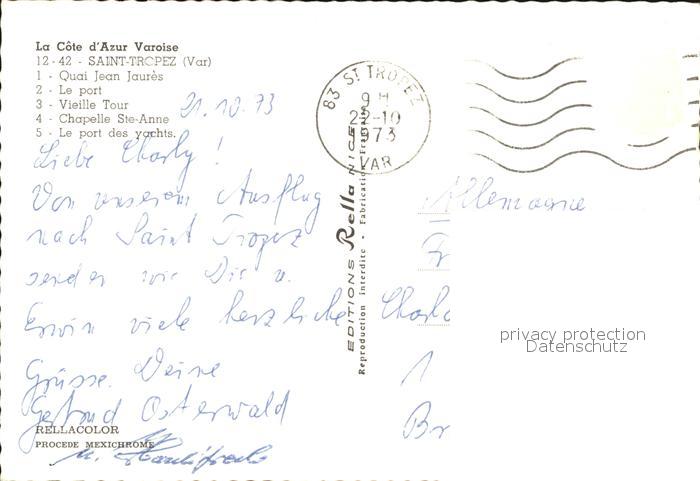 La Côte d'Azur Varoise
12-42 - SAINT-TROPEZ (Var)
1 - Quai Jean Jaurès
2 - Le port
3 - Vieille Tour
4 - Chapelle Ste-Anne
5 - Le port des yachts.
21.10.73
Liebe Charly!
Von unserem Ausflug
nach Saint Tropez
senden wir Dir u.
Erwin viele herzliche
Grüsse. Deine
Gertrud Osterwald
u.
RELLACOLOR
PROCEDE MEXICHROME
EDITIONS Rella NICE
Reproduction interdite - Fabrication
83 ST TROPEZ
9 H
22-10
1973
VAR
Allemagne
Fr
Charlo
1
Br
privacy protection
Datenschutz